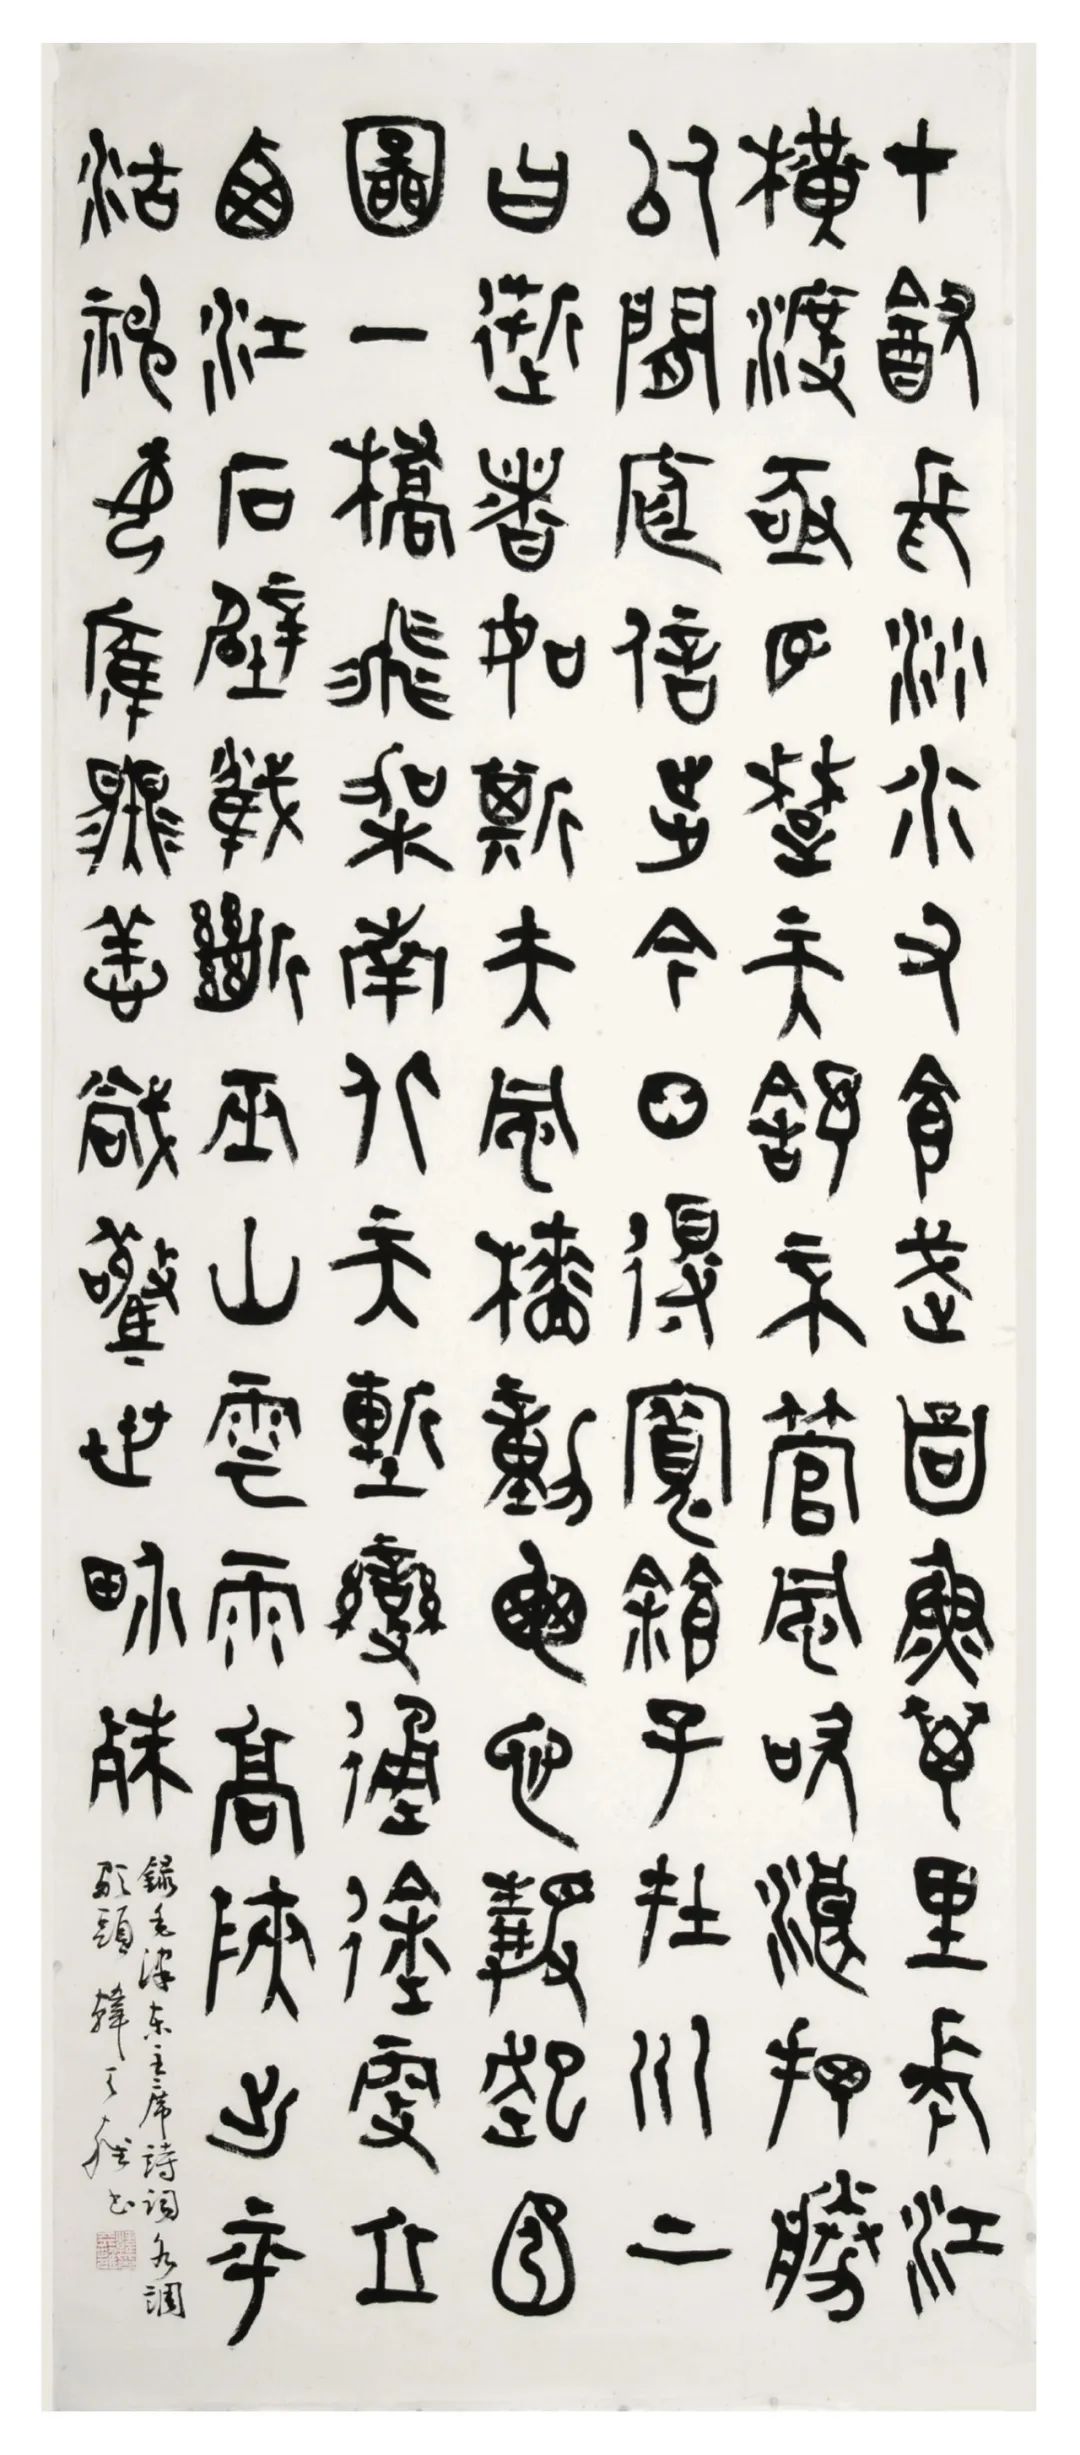 才飲長沙水又食武昌魚萬里長江
橫渡極目楚天舒不管風吹浪打勝
似閒庭信步今日得寬餘子在川上
曰逝者如斯夫風檣動龜蛇靜起宏
圖一橋飛架南北天塹變通途更立
西江石壁截斷巫山雲雨高峽出平
湖神女應無恙當驚世界殊
錄毛澤東主席詩詞水調
歌頭 韓天雍書